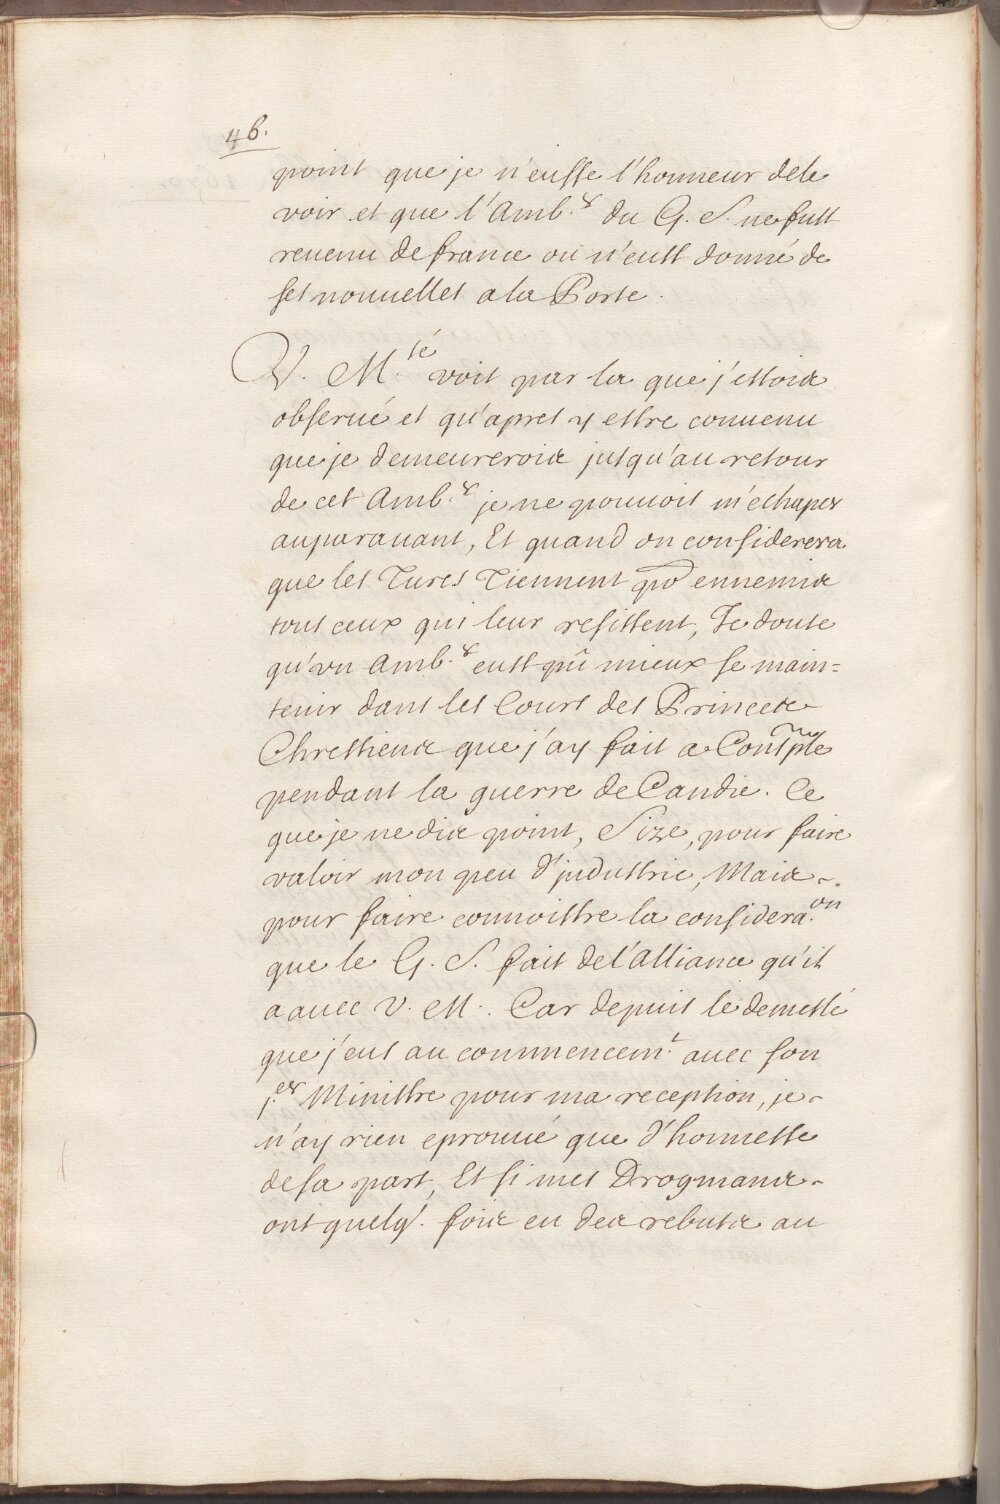 46.
point que je n'eusse l'honneur dele
voir et que l'Amb.r du G. S. ne fust
reuenu de france ou n'eust donné de
ses nouuelles a la Porte.
V. M.té voit par la que j'estois
obserué et qu'apres y estre conuenu
que je demeurerois jusqu'au retour
de cet Amb.r je ne pouuois m'echaper
auparauant, Et quand on considerera
que les Turcs Tiennent po.r ennemis
tous ceux qui leur resistent, Je doute
qu'vn Amb.r eust pû mieux se main=
tenir dans les Cours des Princes
Chrestiens que j'ay fait a Constple
pendant la guerre de Candie. Ce
que je ne dis point, Sire, pour faire
valoir mon peu d'jndustrie, Mais
pour faire connoistre la considera.on
que le G. S. fait de l'Alliance qu'il
a auec V. M. Car depuis le demeslé
que j'eus au commencem.t auec son
1.er Ministre pour ma reception, je
n'ay rien eprouué que d'honneste
de sa part, Et si mes Drogmans
ont quelq.' fois eu des rebuts au